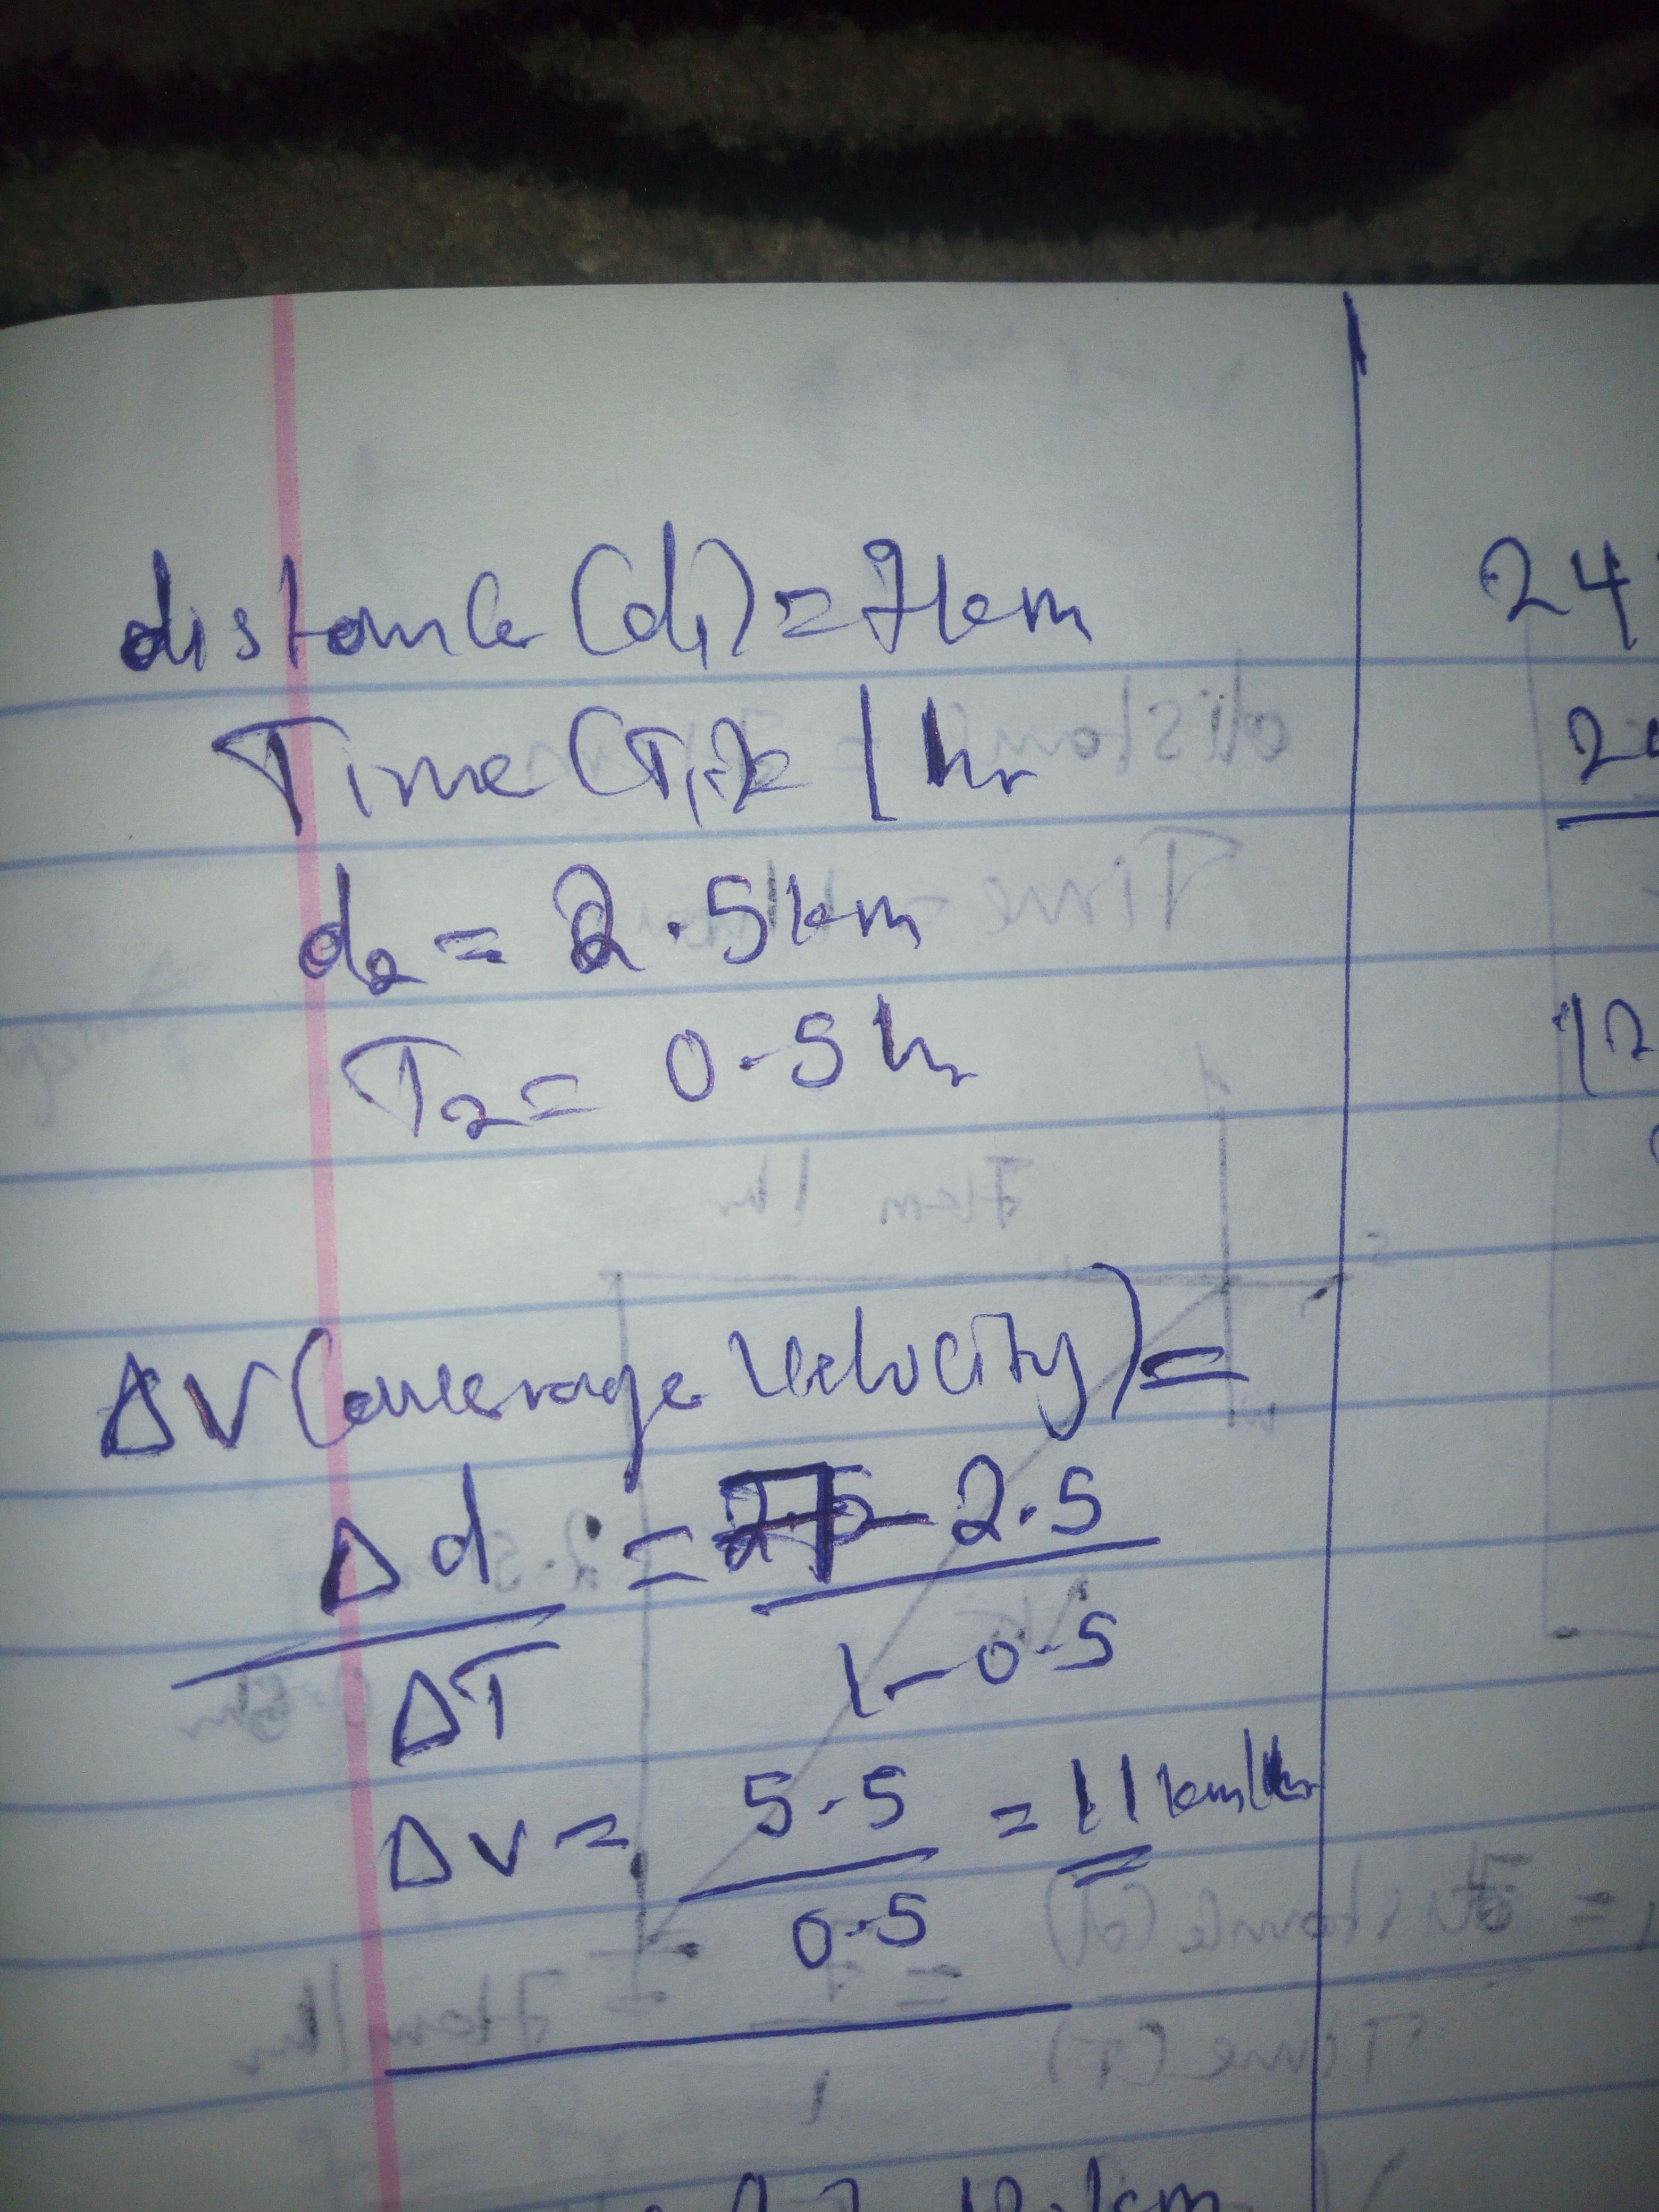 distance (d1) = 7km
Time (T1) = 1hr
d2 = 2.5km
T2 = 0.5hr
ΔV (average velocity) =
Δd = 7 - 2.5
ΔT 1 - 0.5
ΔV = 5.5 = 11km/hr
0.5
24
12